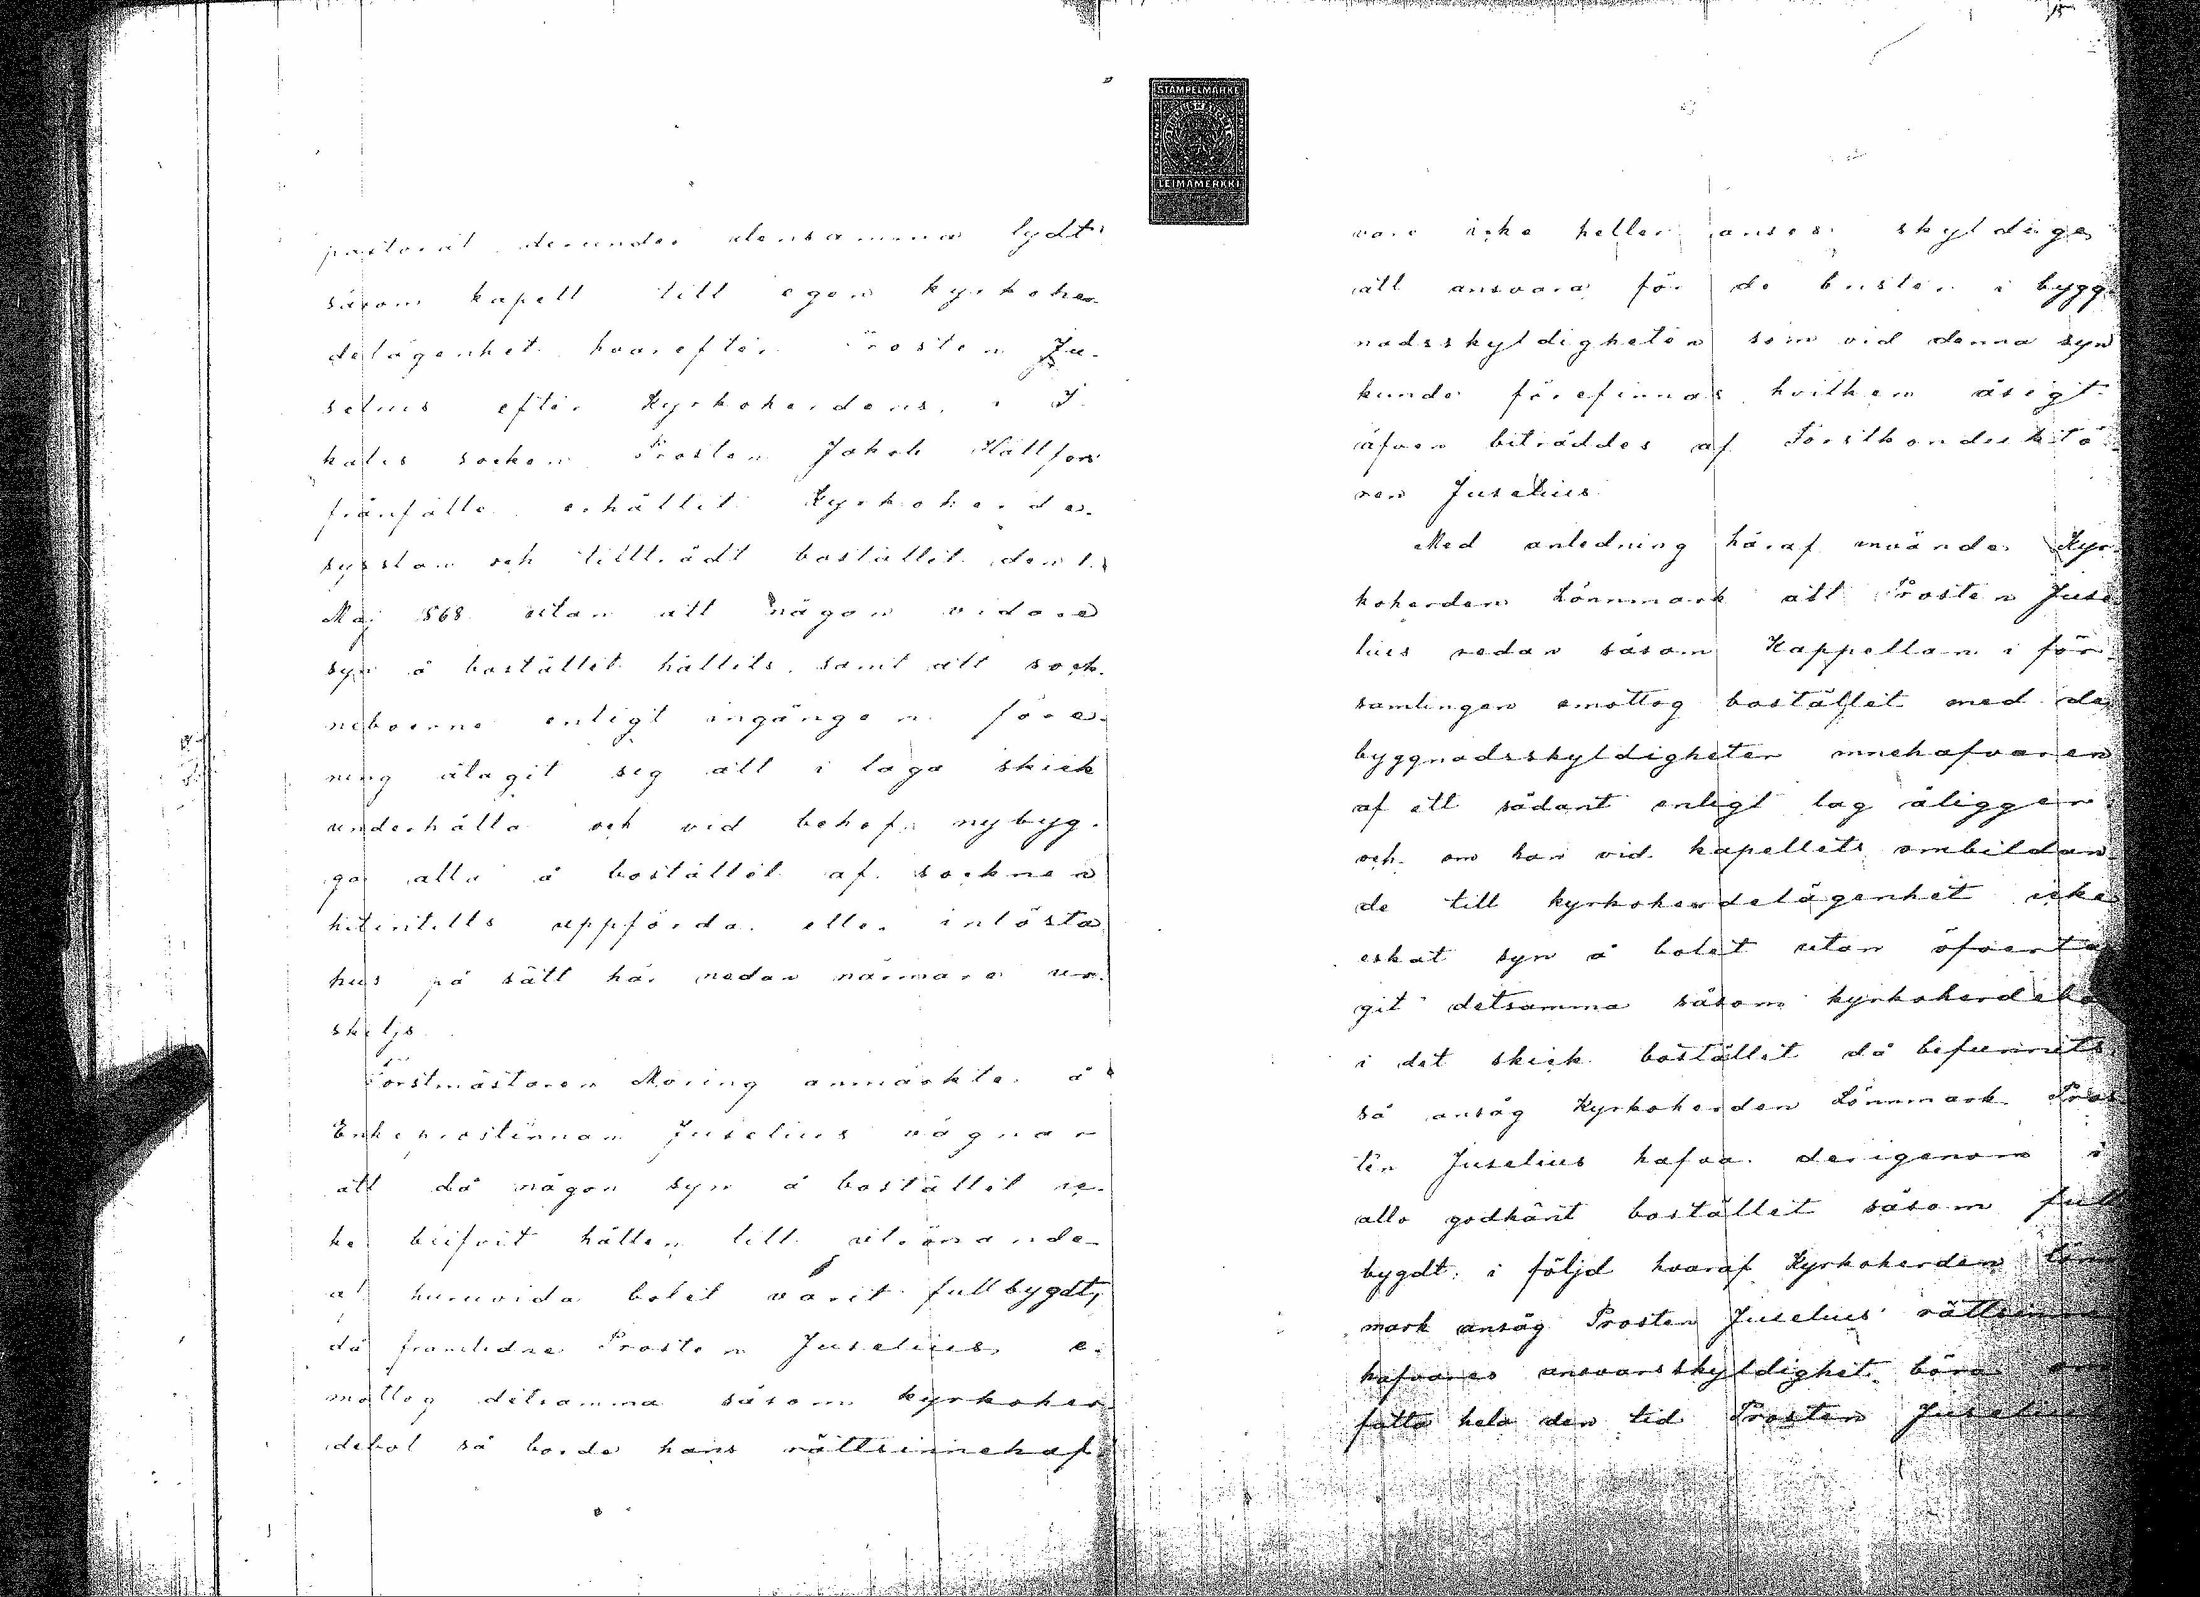 pastorat derunder densamma lydt
såsom kapell till egen kyrkoher-
delägenhet hvarefter Prosten Ju-
selius efter Kyrkoherdens i I
kalis socken Prosten Jakob Hällfors
frånfälle erhållit Kyrkoherde-
sysslan och tillträdt bostället den 1
Maj 1868 utan att någon vidare
syn å bostället hållits, samt att sock-
neboerne enligt ingången före-
ning ålagit sig att i laga skick
underhålla och vid behof nybyg-
ga alla å bostället af socknen
hitintills uppförda eller inlösta
hus på sätt här nedan närmare ur-
skiljs.
Forstmästaren Moring anmärkte å
Enkeprostinnan Juselius vägnar
att då någon syn å bostället ic-
ke blifvit hållen till utrönande
af huruvida bolet varit fullbygdt,
då framlidne Prosten Juselius e-
mottog detsamma såsom kyrkoher-
debol så borde hans rättsinnehaf-
vare icke heller anses skyldige
att ansvara för de brister i bygg-
nadsskyldigheten som vid denna syn
kunde förefinnas hvilken åsigt
äfven biträddes af Forstkonduktö-
ren Juselius.
Med anledning häraf invände Kyr-
koherden Lönnmark att Prosten Juse-
lius redan såsom Kappellan i för-
samlingen emottog bostället med de
byggnadsskyldigheter innehafvaren
af ett sådant enligt lag åligger
och om han vid kapellets ombildan-
de till kyrkoherdelägenhet icke
eskat syn å bolet utan öfverta-
git detsamma såsom kyrkoherdebo
i det skick bostället då befunnits
så ansåg Kyrkoherden Lönnmark Pros-
ten Juselius hafva derigenom i
allo godkänt bostället såsom full
bygdt; i följd hvaraf Kyrkoherden Lönn
mark ansåg Prosten Juselius' rättsinne
hafvares ansvarsskyldighet böra om
fatta hela den tid Prosten Juselius
STÄMPELMÄRKE
LEIMAMERKKI